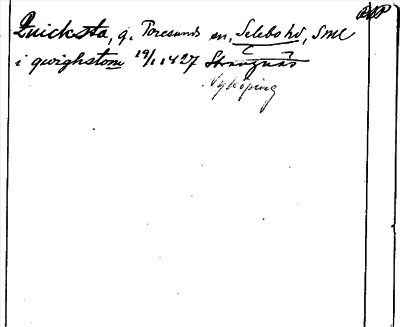 Quicksta, g. Toresunds sn, Selebo hd, Sml
i qwighstom 19/1 1427 Strängnäs
Nyköping